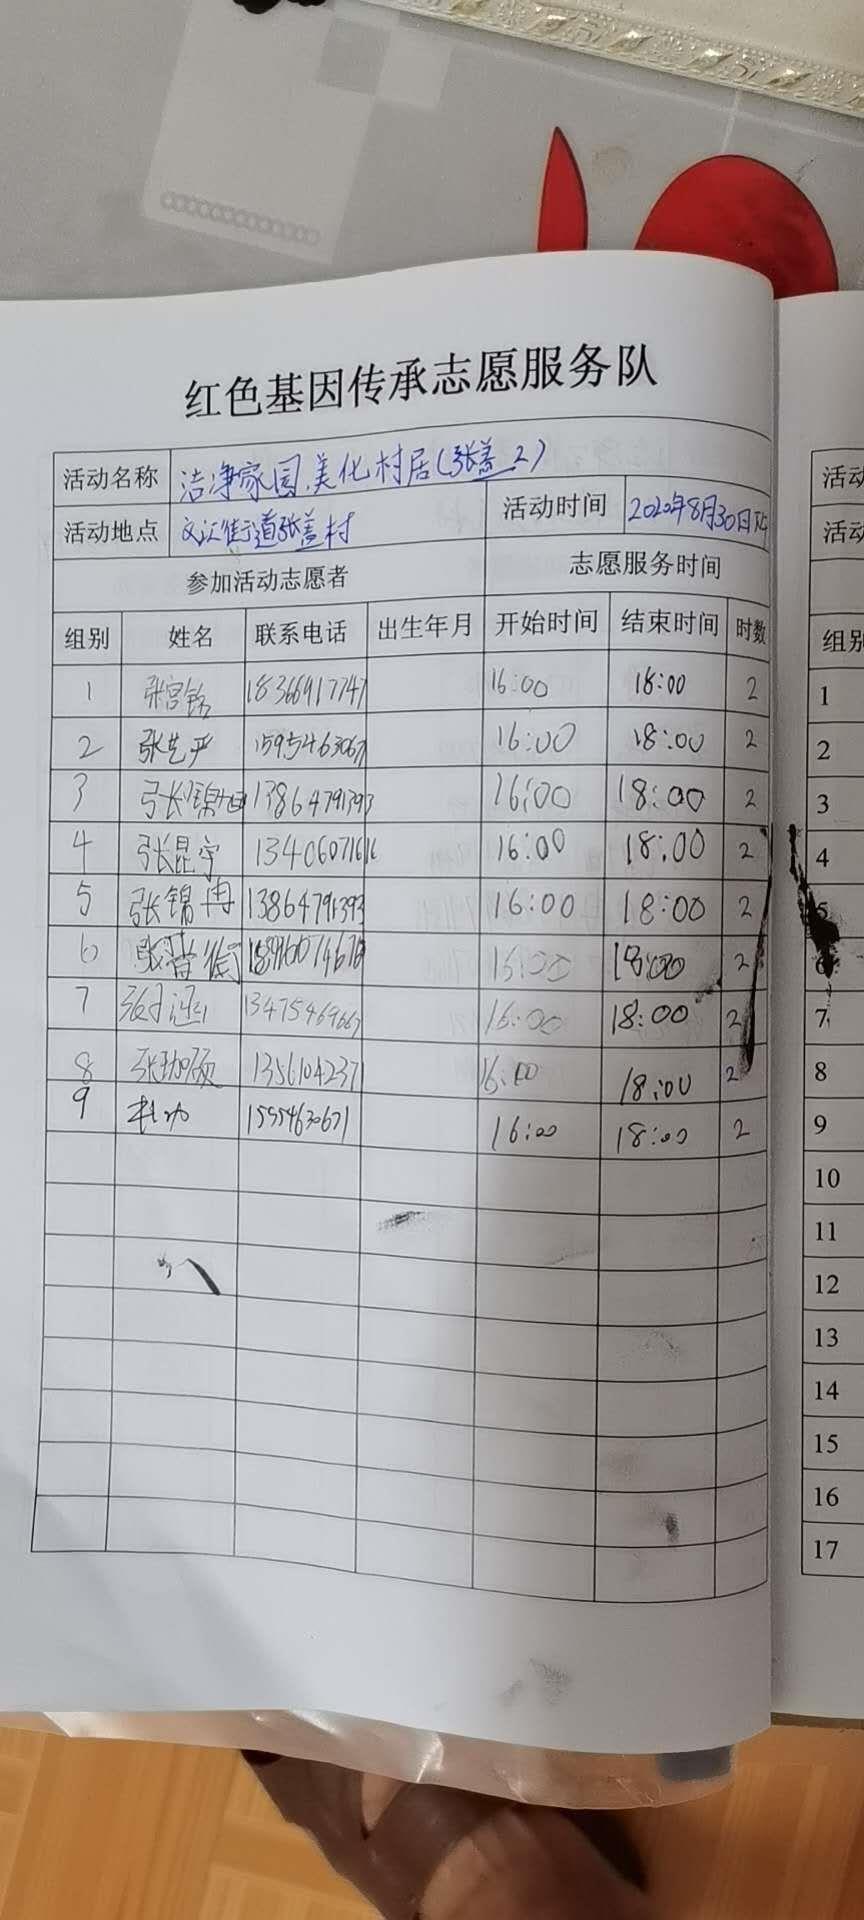 红色基因传承志愿服务队
活动名称 洁净家园,美化村居(张盖 2)
活动地点 汶汇街道张盖村 活动时间 2020年8月30日下午
参加活动志愿者 志愿服务时间
组别 姓名 联系电话 出生年月 开始时间 结束时间 时数
1 张宫铭 18366917747 16:00 18:00 2
2 张艺严 16:00 18:00 2
3 13864791393 16:00 18:00 2
4 张昆宇 13406071616 16:00 18:00 2
5 张锦冉 13864791393 16:00 18:00 2
6 18:00 2
7 13475469667 16:00 18:00 2
8 13561042371 16:00 18:00 2
9 15554630671 16:00 18:00 2
活动
活动
组别
1
2
3
4
5
6
7
8
9
10
11
12
13
14
15
16
17